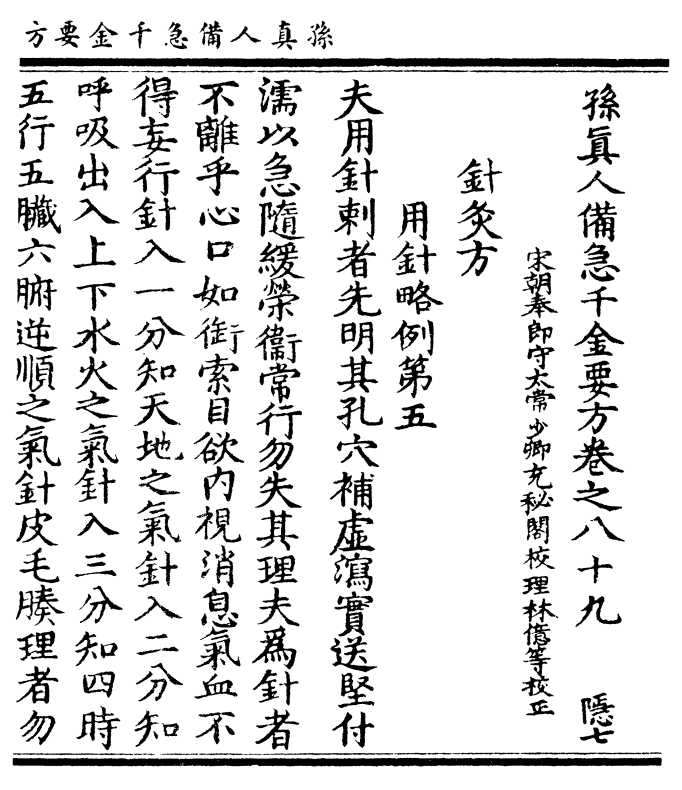 孫真人備急千金要方
孫真人備急千金要方卷之八十九　隱七
宋朝奉郎守太常少卿充秘閣校理林億等校正
針灸方
用針略例第五
夫用針刺者先明其孔穴補虛瀉實送堅付
濡以急隨緩榮衞常行勿失其理夫為針者
不離乎心口如銜索目欲內視消息氣血不
得妄行針入一分知天地之氣針入二分知
呼吸出入上下水火之氣針入三分知四時
五行五臟六腑逆順之氣針皮毛腠理者勿